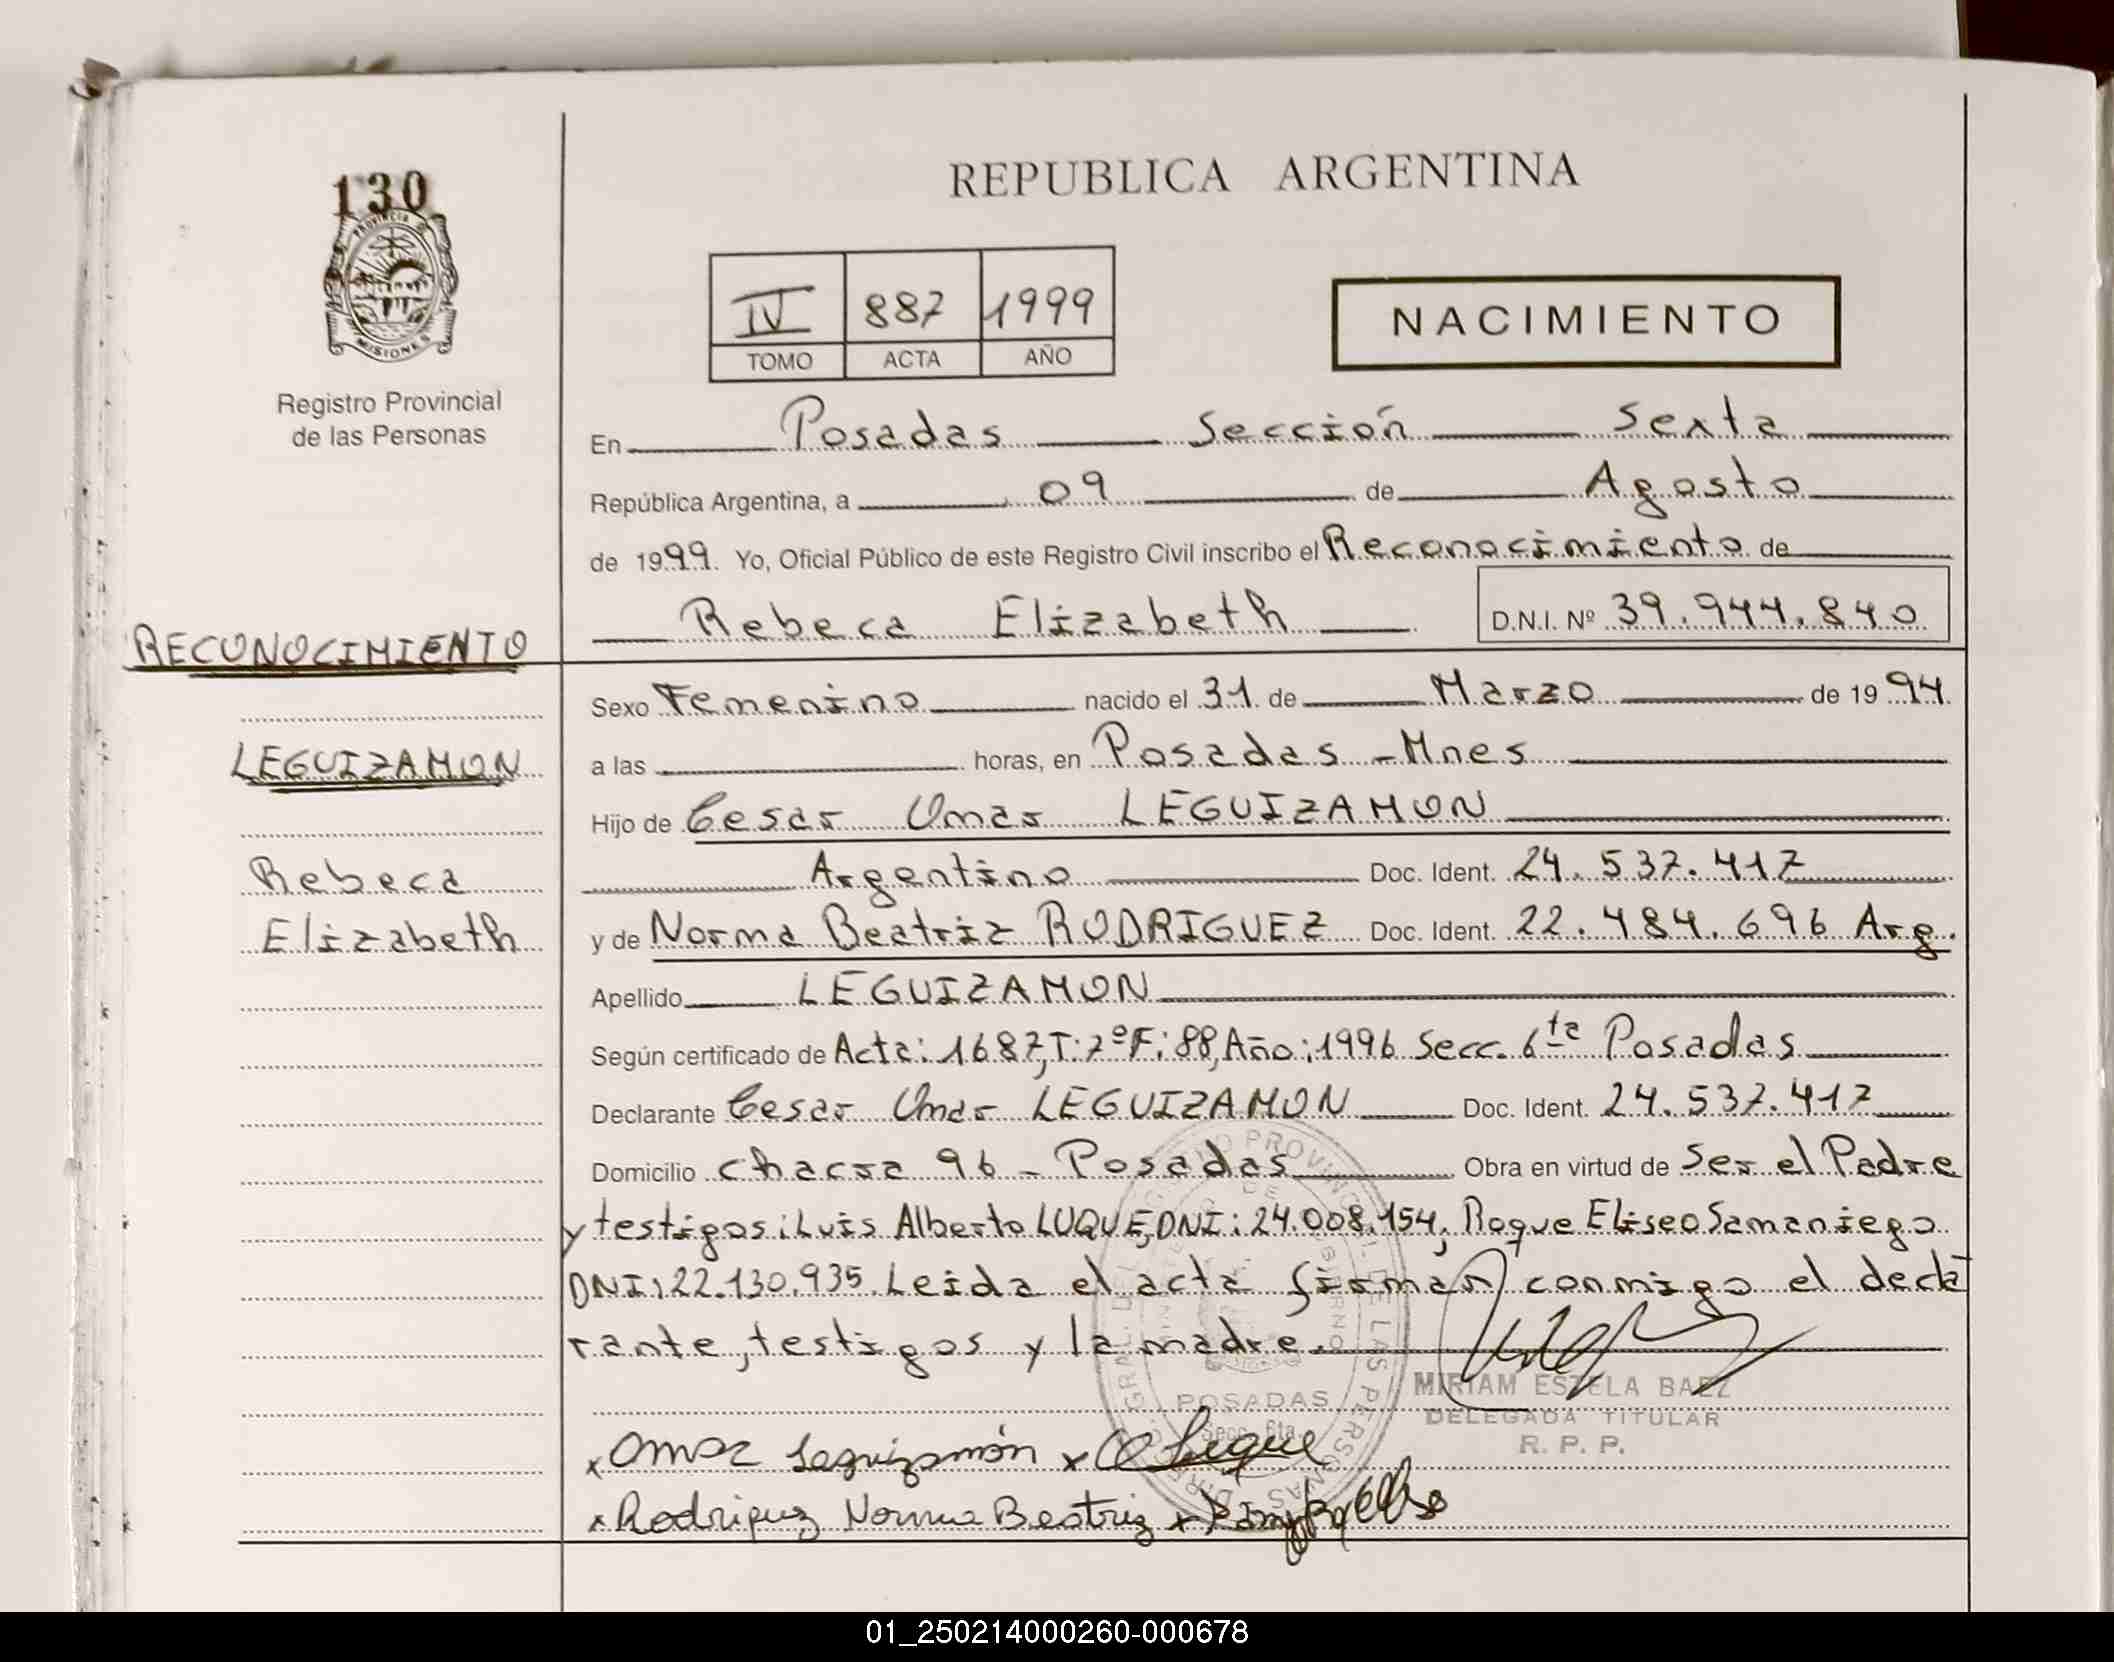 130
PROVINCIA DE
MISIONES
Registro Provincial
de las Personas
REPUBLICA ARGENTINA
IV 887 1999
TOMO ACTA AÑO
NACIMIENTO
En Posadas Sección Sexta
República Argentina, a 09 de Agosto
de 1999. Yo, Oficial Público de este Registro Civil inscribo el Reconocimiento de
Rebeca Elizabeth D.N.I. Nº 39.944.840
RECONOCIMIENTO
LEGUIZAMON
Rebeca
Elizabeth
Sexo Femenino nacido el 31 de Marzo de 1994.
a las horas, en Posadas - Mnes
Hijo de Cesar Omar LEGUIZAMON
Argentino Doc. Ident. 24.537.417
y de Norma Beatriz RODRIGUEZ Doc. Ident. 22.484.696 Arg.
Apellido LEGUIZAMON
Según certificado de Acta: 1687, T: 7º F: 88, Año: 1996 Secc. 6ta Posadas
Declarante Cesar Omar LEGUIZAMON Doc. Ident. 24.537.417
Domicilio chacra 96 - Posadas Obra en virtud de Ser el Padre
y testigos: Luis Alberto LUQUE, DNI: 24.008.154, Roque Eliseo Samaniego
DNI: 22.130.935. Leida el acta firman conmigo el decla
rante, testigos y la madre.
POSADAS
Secc. 6ta.
MIRIAM ESTELA BAEZ
DELEGADA TITULAR
R. P. P.
x Omar Leguizamón x Luque
x Rodriguez Norma Beatriz x
01_250214000260-000678